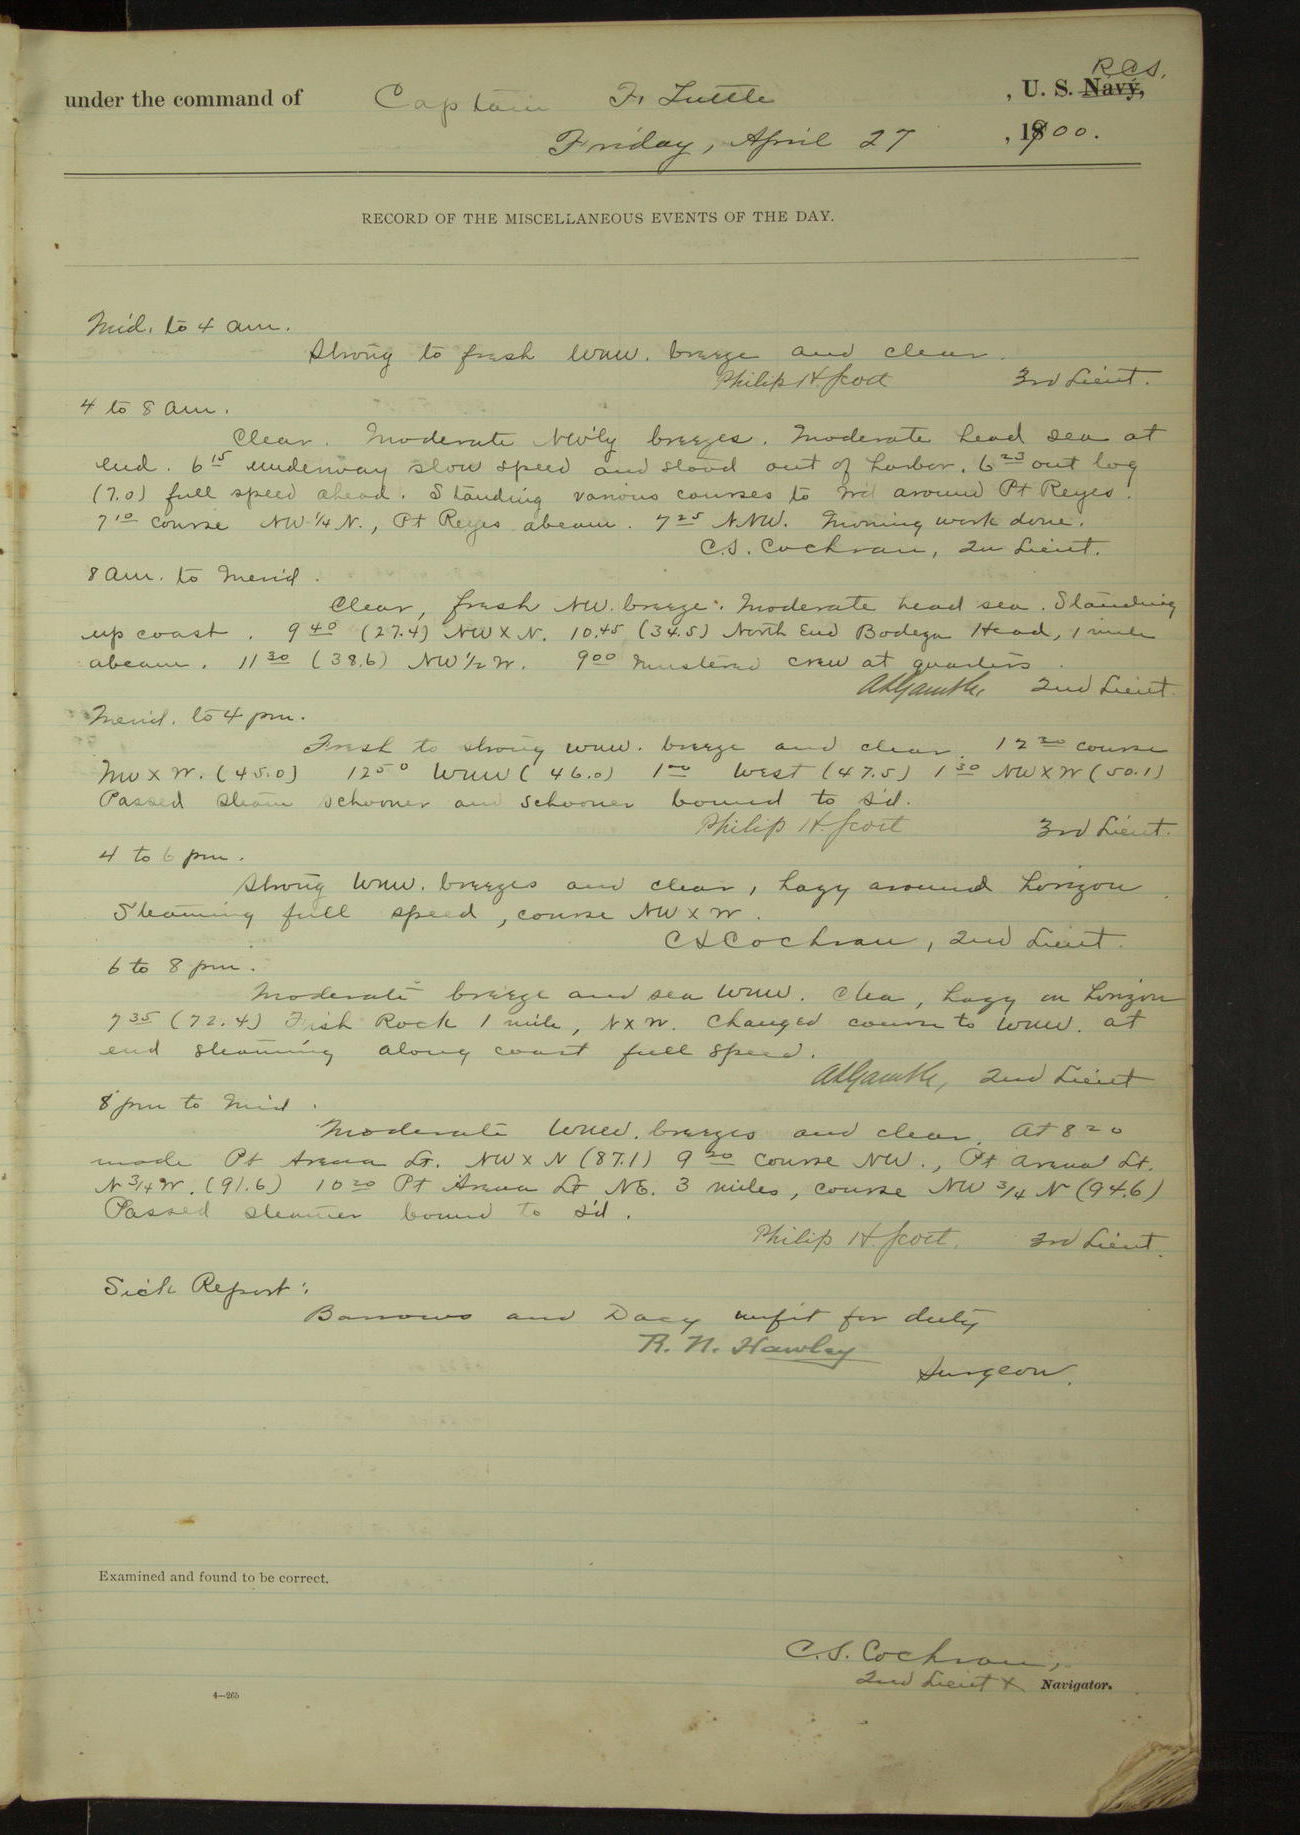 R.C.S.
under the command of Captain F. Tuttle , U. S. Navy,
Friday, April 27 , 1900.
RECORD OF THE MISCELLANEOUS EVENTS OF THE DAY.
Mid. to 4 am.
Strong to fresh WNW. breeze and clear.
Philip H Scott 3rd Lieut.
4 to 8 am.
Clear. Moderate NW'ly breezes. Moderate head sea at
end. 6 15 underway slow speed and stood out of harbor. 6 23 out log
(7.0) full speed ahead. Standing various courses to around Pt Reyes.
7 10 course NW 1/4 N., Pt Reyes abeam. 7 25 NNW. Morning work done.
C.S. Cochran, 2n Lieut.
8 am. to Merid.
Clear, fresh NW. breeze. Moderate head sea. Standing
up coast. 9 40 (27.4) NW X N. 10.45 (34.5) North End Bodega Head, 1 mile
abeam. 11 30 (38.6) NW 1/2 W. 9 00 Mustered crew at quarters.
2nd Lieut.
Merid. to 4 pm.
Fresh to strong WNW. breeze and clear. 12 20 course
NW X W. (45.0) 12 50 WNW (46.0) 1 00 West (47.5) 1 30 NW X W (50.1)
Passed steam schooner and schooner bound to S'd.
Philip H. Scott 3rd Lieut.
4 to 6 pm.
Strong WNW. breezes and clear, hazy around horizon.
Steaming full speed, course NW X W.
C S Cochran, 2nd Lieut.
6 to 8 pm.
Moderate breeze and sea WNW. Clea, hazy on horizon
7 35 (72.4) Fish Rock 1 mile, N X W. Changed course to WNW. at
end steaming along coast full speed.
2nd Lieut
8 pm to Mid.
Moderate WNW. breezes and clear. At 8 20
made Pt Arena Lt. NW X N (87.1) 9 20 course NW., Pt Arena Lt.
N 3/4 W. (91.6) 10 20 Pt Arena Lt NE. 3 miles, course NW 3/4 N (94.6)
Passed steamer bound to S'd.
Philip H. Scott. 3rd Lieut.
Sick Report:
Barrows and Dacy unfit for duty
R. N. Hawley
Surgeon.
Examined and found to be correct.
C. S. Cochran,
2nd Lieut & Navigator.
4—265